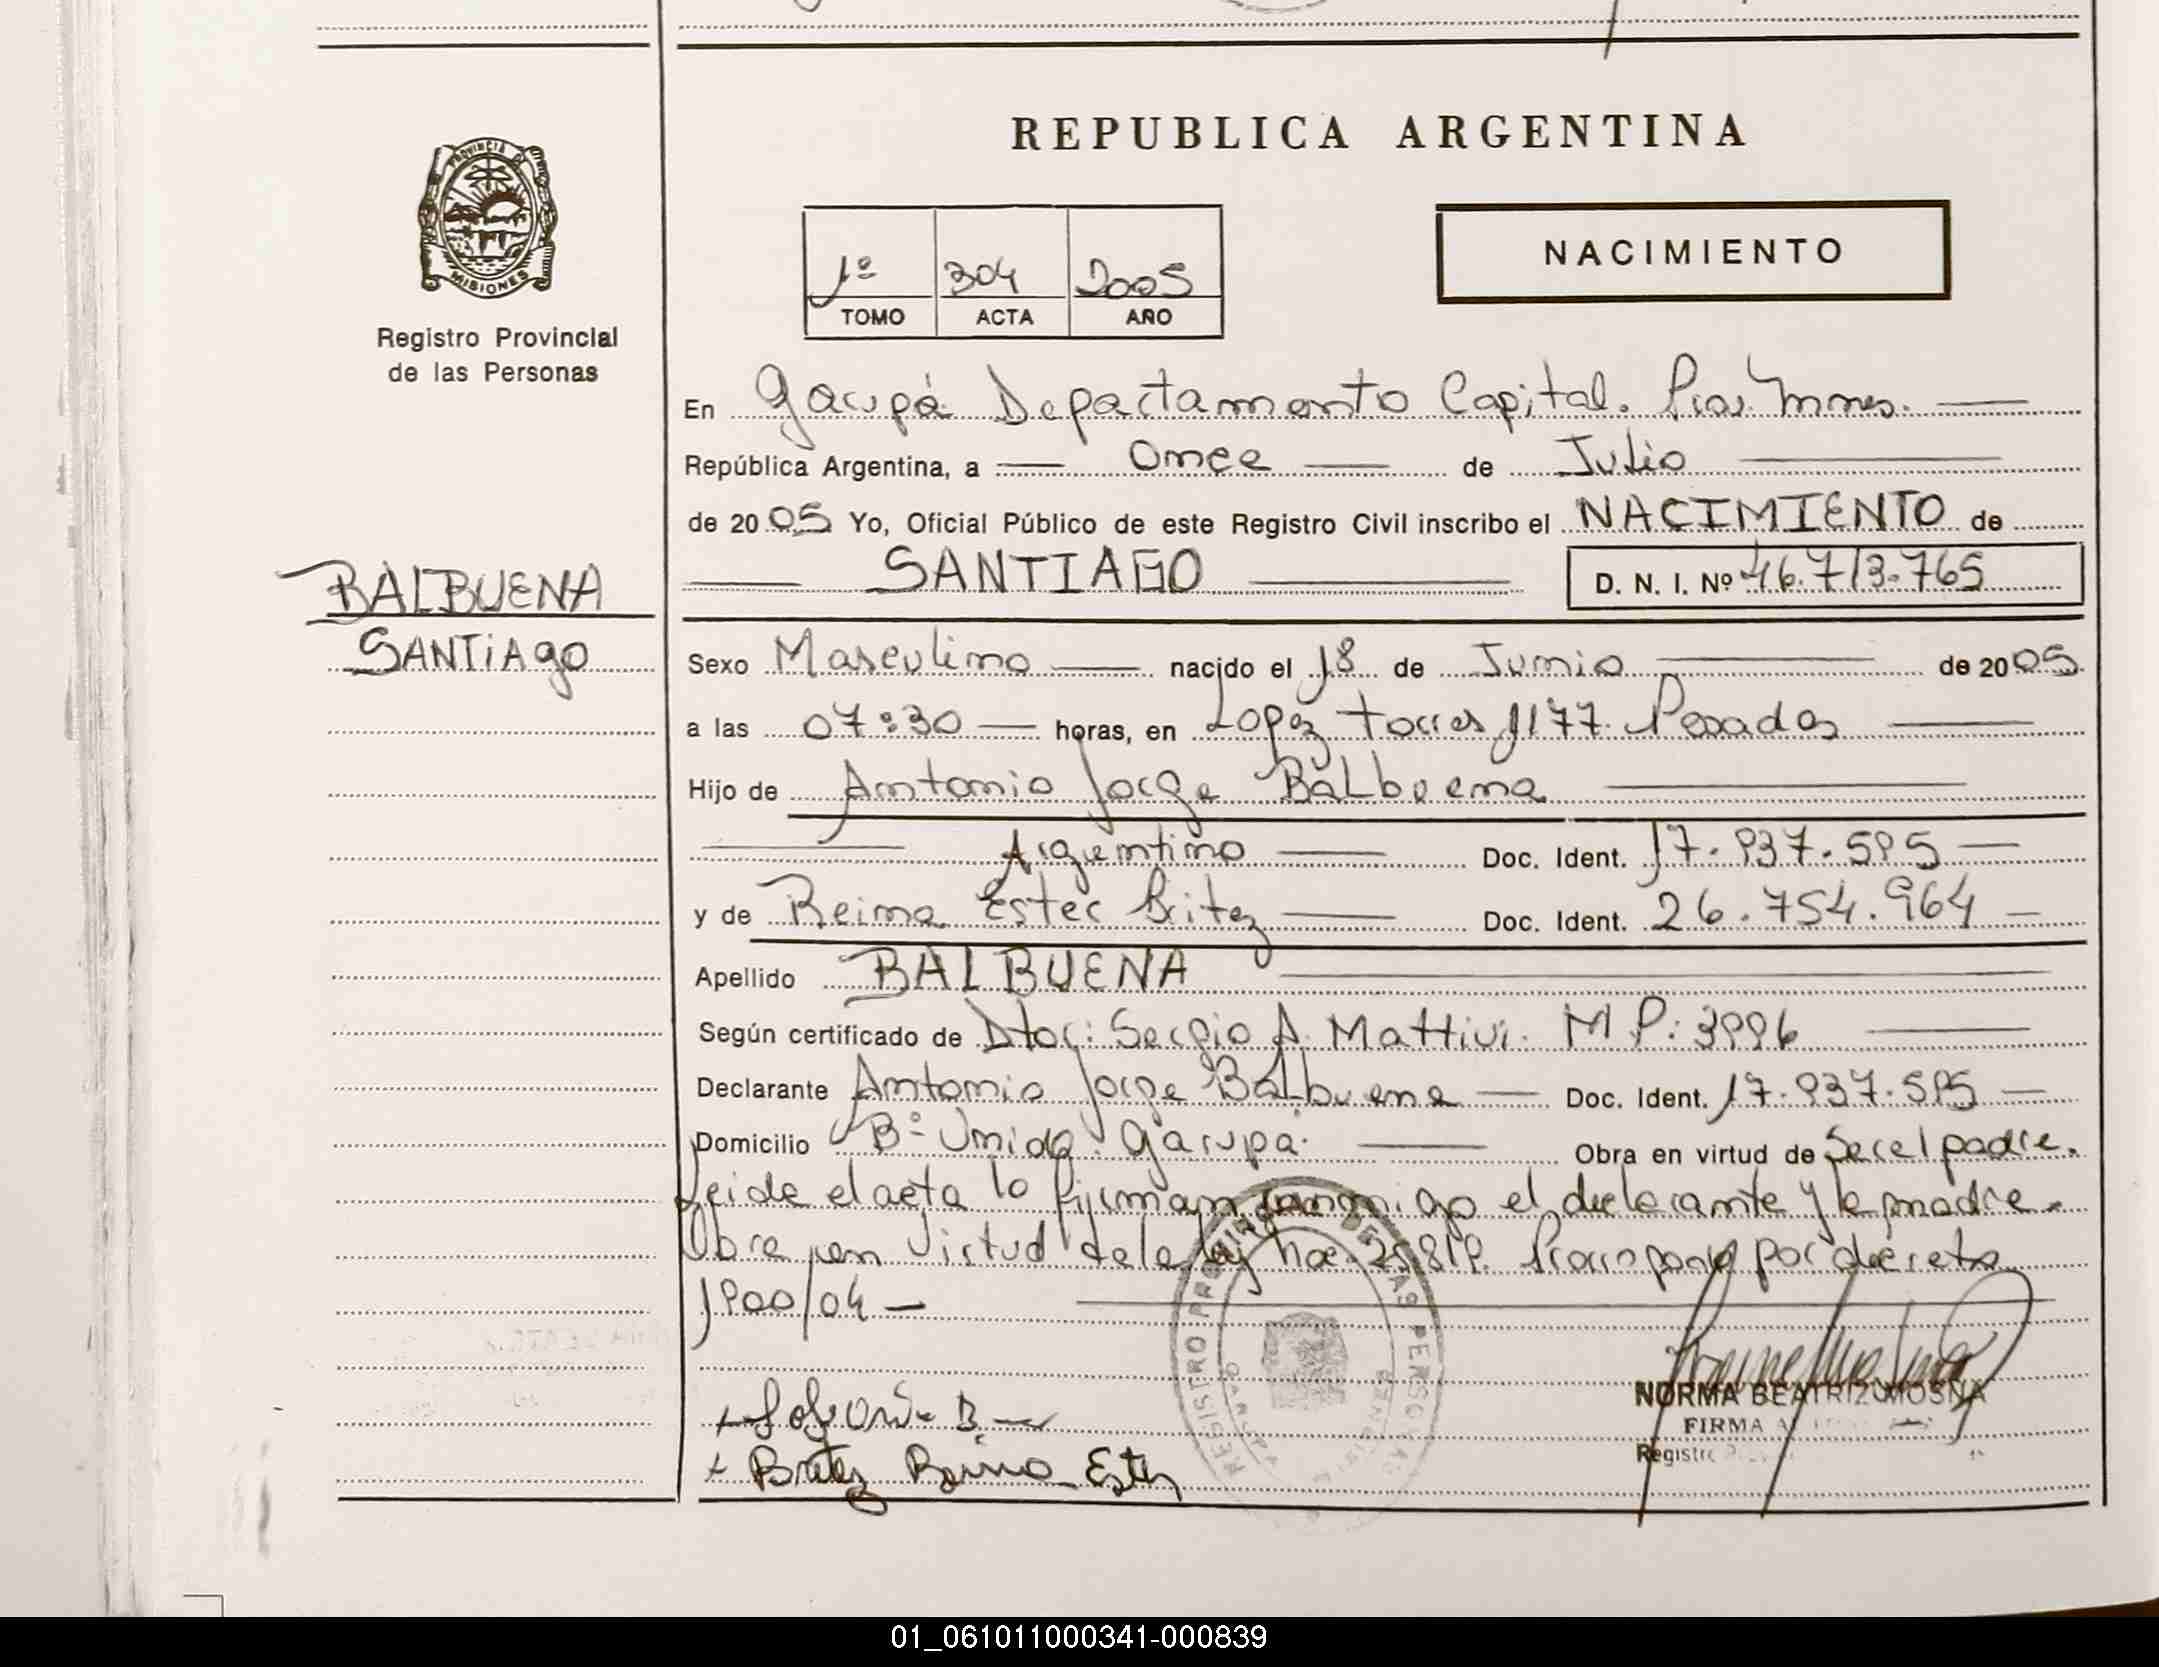 REPUBLICA ARGENTINA
PROVINCIA DE MISIONES
Registro Provincial
de las Personas
1º 304 2005
TOMO ACTA AÑO
NACIMIENTO
En Garupá Departamento Capital. Pcia. Mnes.
República Argentina, a Once de Julio
de 2005 Yo, Oficial Público de este Registro Civil inscribo el NACIMIENTO de
SANTIAGO D. N. I. Nº 46.713.765
BALBUENA
SANTIAgo
Sexo Masculino nacido el 18 de Junio de 2005
a las 07:30 horas, en Lopez Torres 1177. Posadas
Hijo de Antonio Jorge Balbuena
Argentino Doc. Ident. 17.937.595
y de Reina Ester Britez Doc. Ident. 26.754.964
Apellido BALBUENA
Según certificado de Dtor: Sergio A. Mattivi. M P: 3996
Declarante Antonio Jorge Balbuena Doc. Ident. 17.937.595
Domicilio Bº Unido. Garupa. Obra en virtud de Ser el padre.
Leida el acta lo firman conmigo el declarante y la madre.
Obra en virtud de la ley nac. 25.819. Prorrogada por decreto
1900/04
REGISTRO PROVINCIAL DE LAS PERSONAS
+ B.
+ Britez Reina Ester
NORMA BEATRIZ MOSNA
FIRMA
Registro
01_061011000341-000839